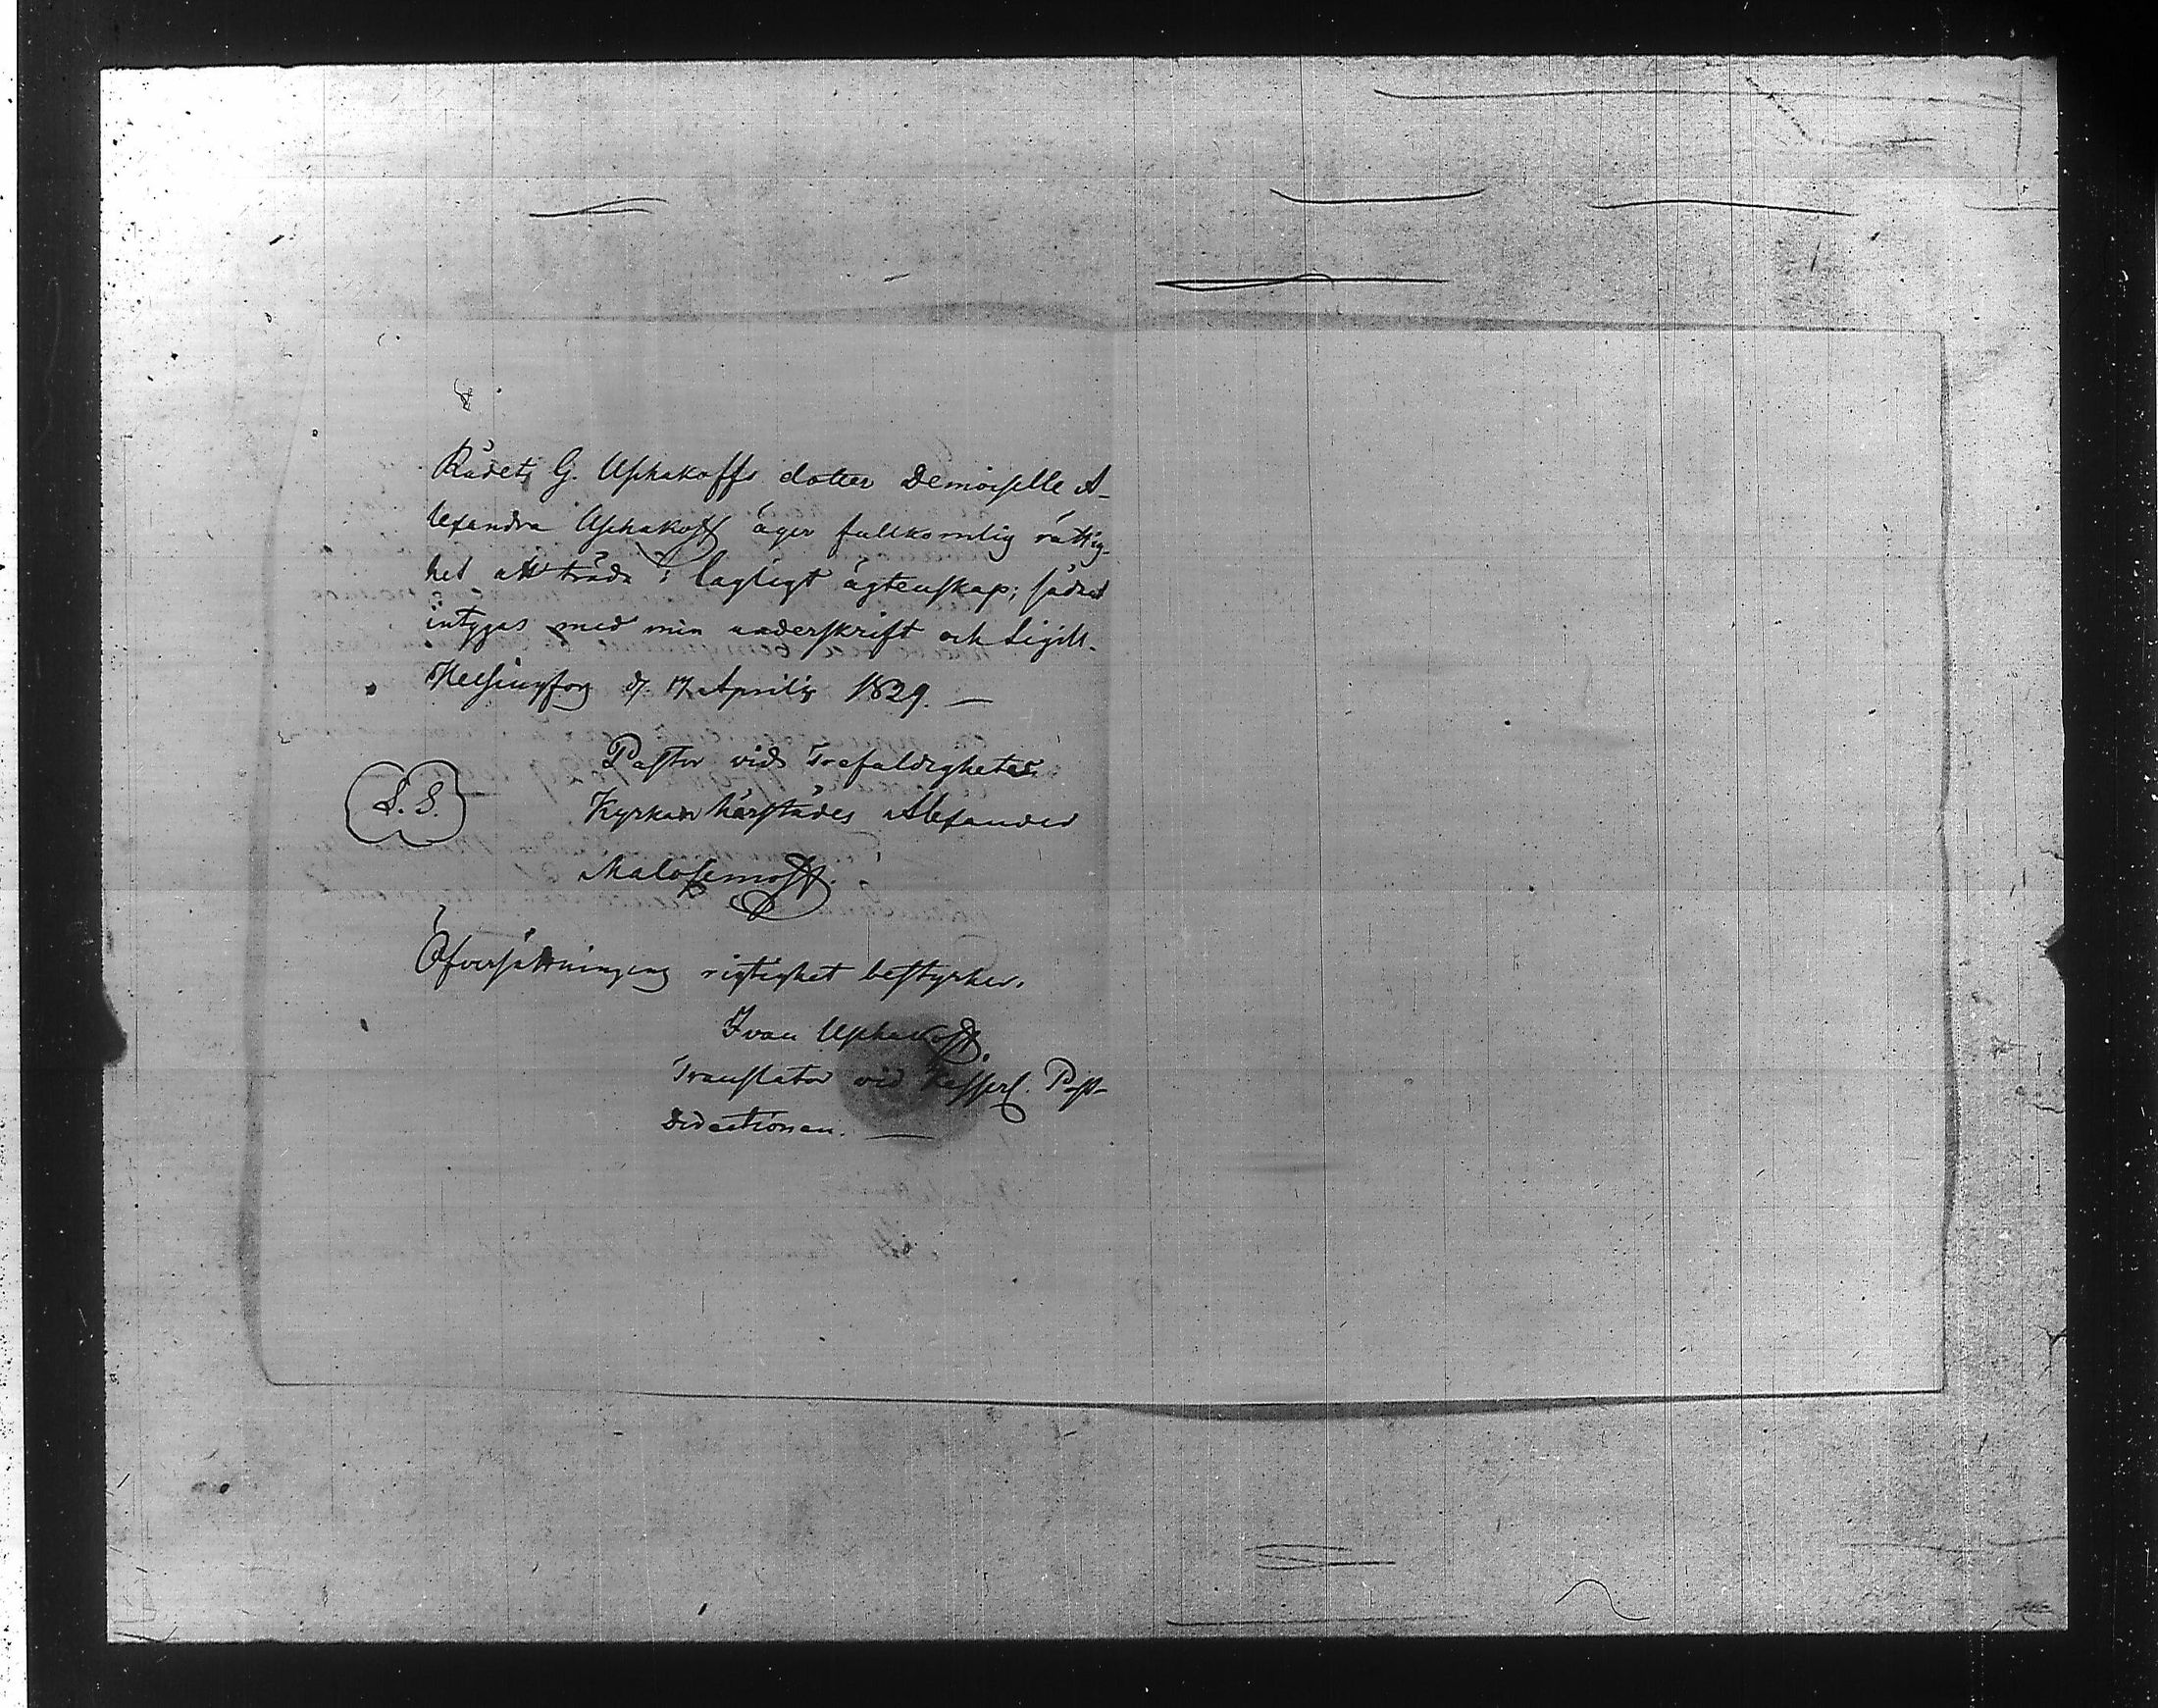 Rådets G. Uschakoffs dotter Demoiselle A-
lexandra Uschakoff äger fullkomlig rättig-
het att träda i lagligt ägtenskap; sådant
intygas med min underskrift och Sigill.
Helsingfors d. 17 Aprilis 1829. —
Pastor vid Trefaldighets
L.S.
Kyrkan härstädes Alexander
Malosemoff.
Öfversättningens rigtighet bestyrker.
Ivan Uschakoff.
Translator vid Kejserl. Post-
Directionen. —